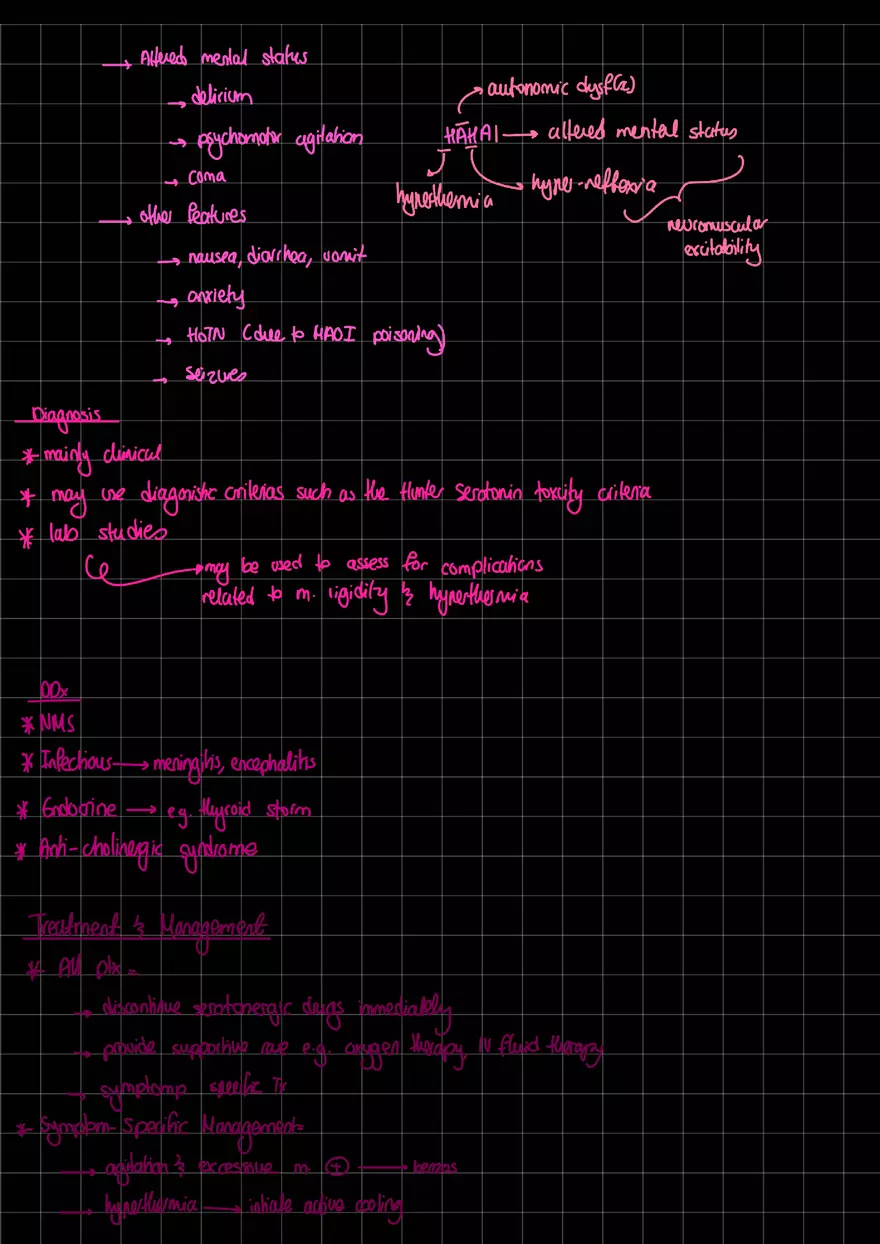 → Altered mental status
→ delirium
→ psychomotor agitation
→ coma
→ other features
→ nausea, diarrhea, vomit
→ anxiety
→ HoTN (due to MAOI poisoning)
→ seizures
autonomic dysf(x)
HAHA! → altered mental status
hyperthermia
hyper-reflexia
neuromuscular
excitability
Diagnosis
* mainly clinical
* may use diagonistic criterias such as the Hunter Serotonin toxcity criteria
* lab studies
→ may be used to assess for complications
related to m. rigidity & hyperthermia
DDx
* NMS
* Infectious → meningitis, encephalitis
* Endocrine → e.g. thyroid storm
* Anti-cholinergic syndrome
Treatment & Management
* All ptx -
→ discontinue serotonergic drugs immediately
→ provide supportive care e.g. oxygen therapy, IV fluid therapy
→ symptomp specific Tx
* Symptom-Specific Management-
→ agitation & excessive m. (+) → benzos
→ hyperthermia → initiate active cooling